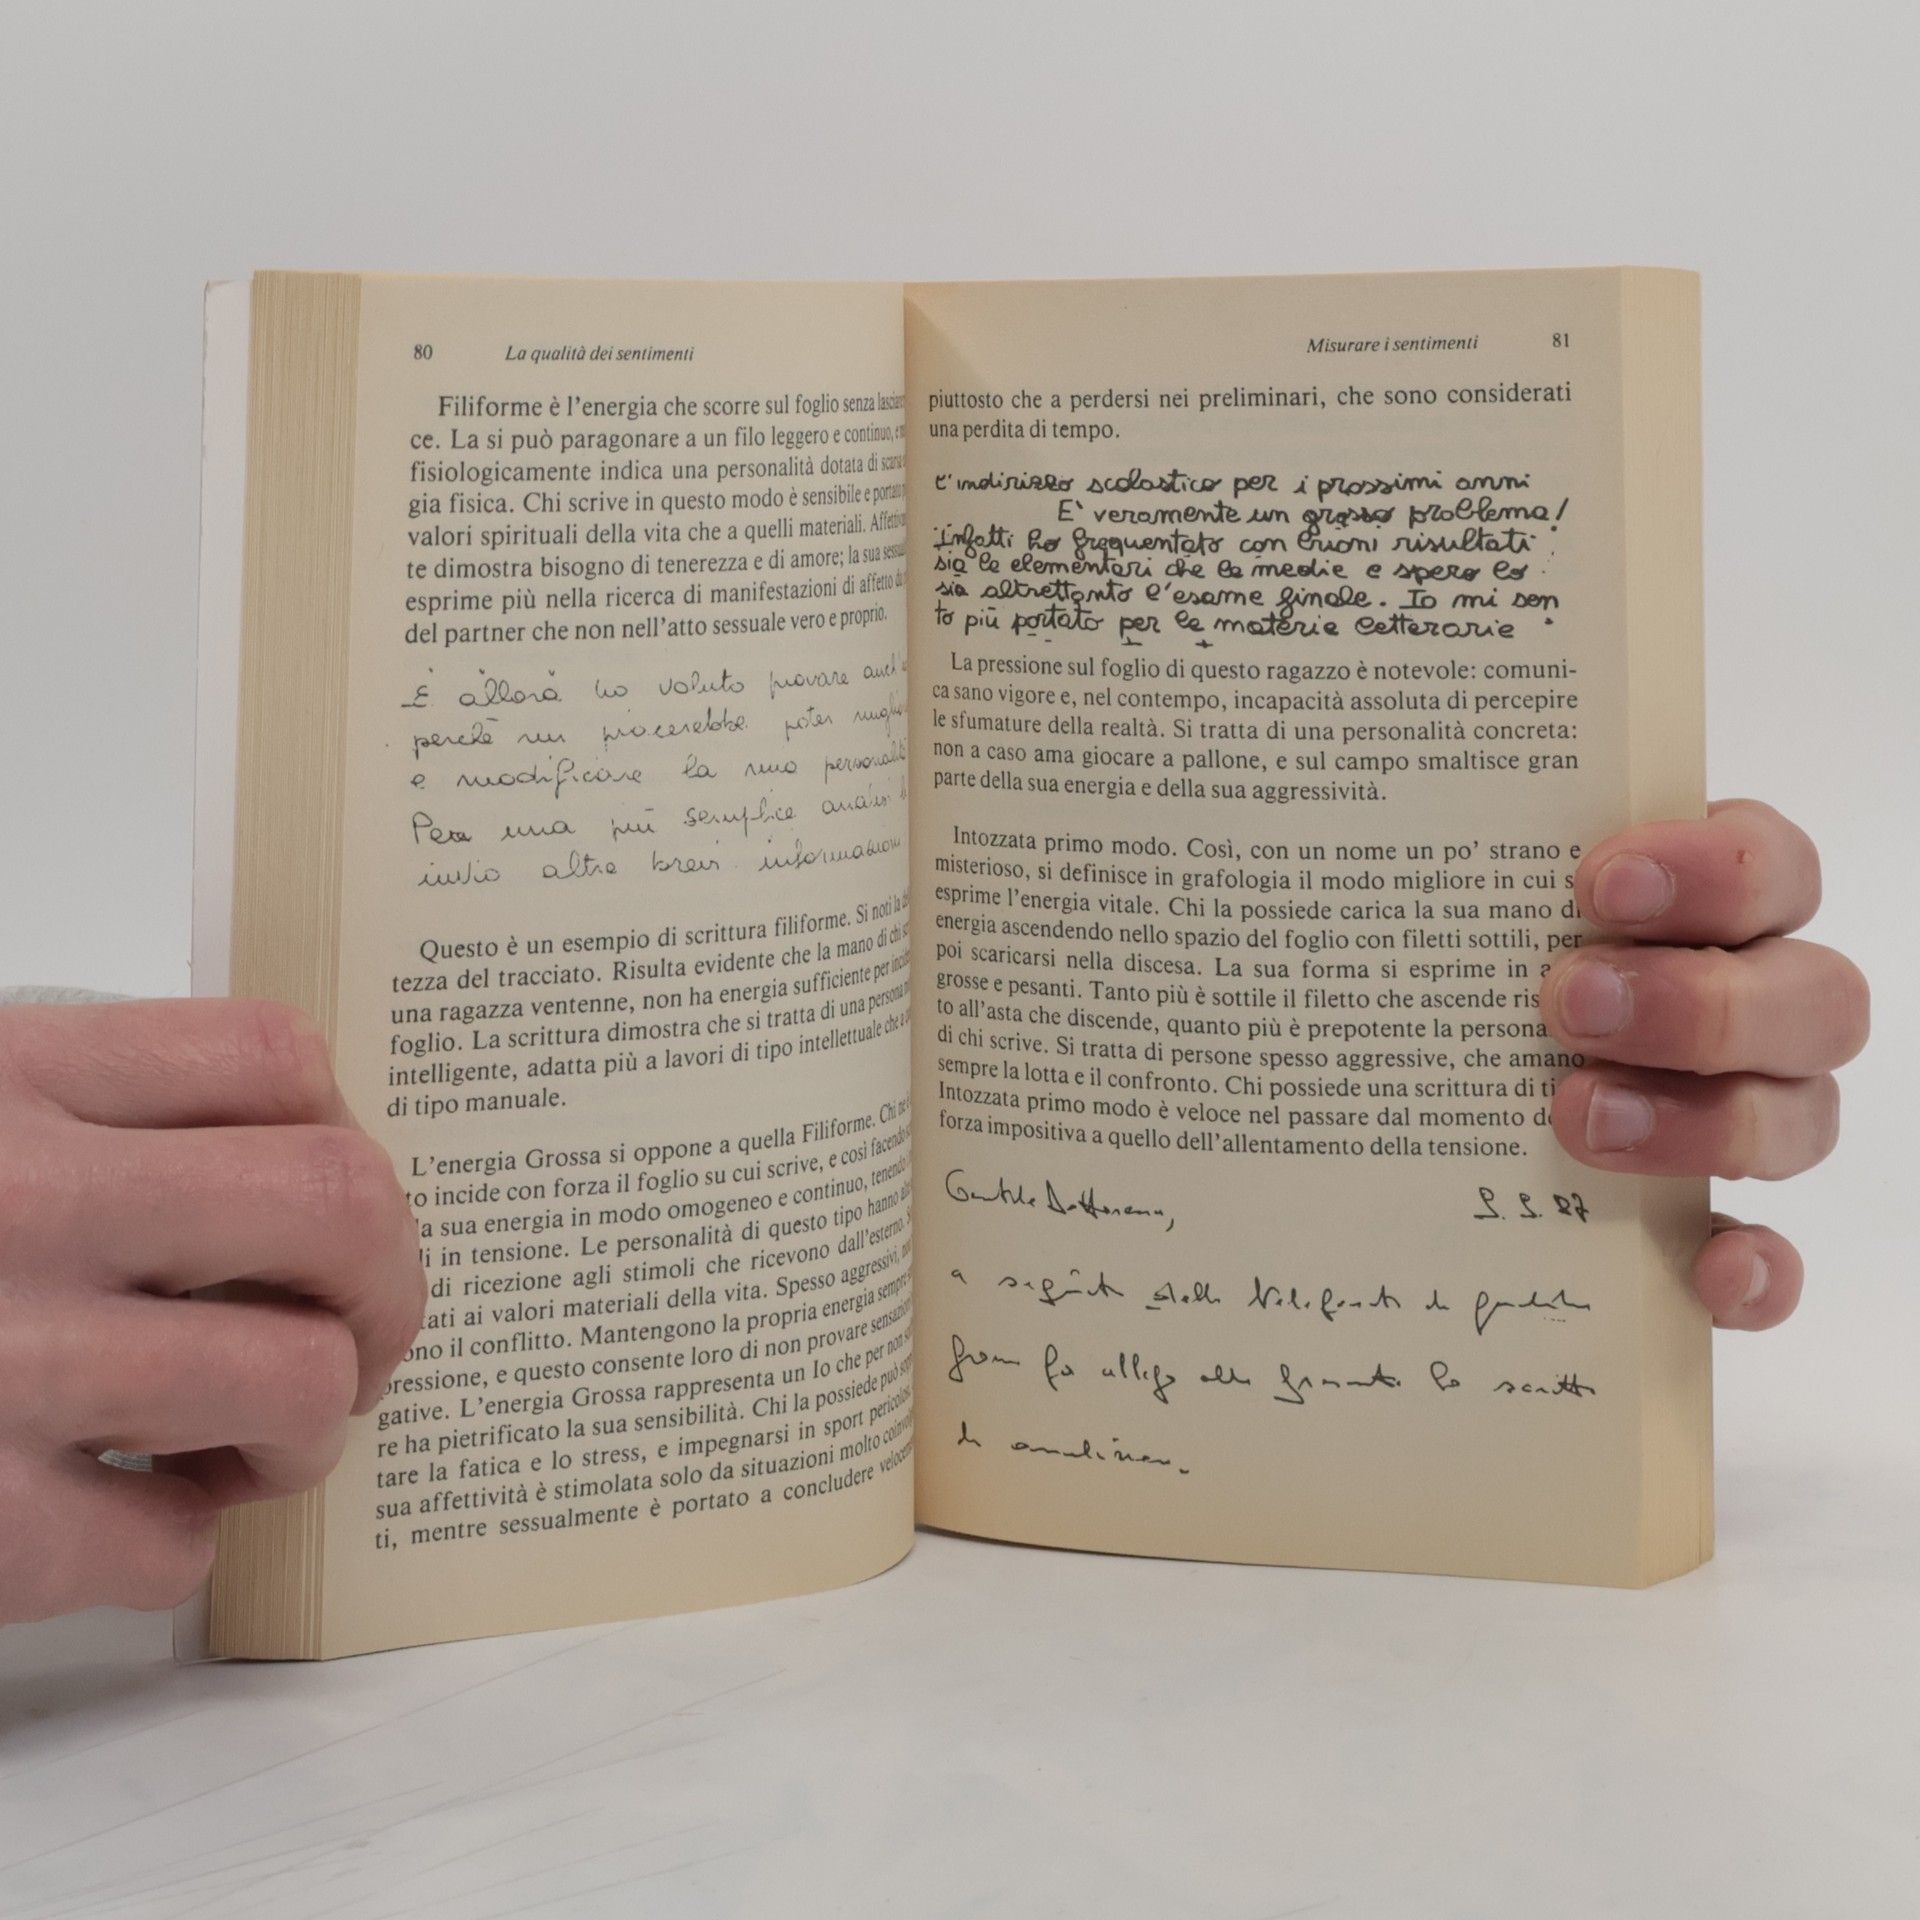 80 La qualità dei sentimenti
Filiforme è l'energia che scorre sul foglio senza
ce. La si può paragonare a un filo leggero e continuo,
fisiologicamente indica una personalità dotata di
gia fisica. Chi scrive in questo modo è sensibile e
valori spirituali della vita che a quelli materiali.
te dimostra bisogno di tenerezza e di amore; la sua
esprime più nella ricerca di manifestazioni di affetto
del partner che non nell'atto sessuale vero e proprio.
E allora ho voluto provare
perchè mi piacerebbe poter
e modificare la mia
Per una più semplice analisi
invio altre brevi informazioni
Questo è un esempio di scrittura filiforme. Si noti la
tezza del tracciato. Risulta evidente che la mano di chi
una ragazza ventenne, non ha energia sufficiente per
foglio. La scrittura dimostra che si tratta di una persona
intelligente, adatta più a lavori di tipo intellettuale che a
di tipo manuale.
L'energia Grossa si oppone a quella Filiforme. Chi
to incide con forza il foglio su cui scrive, e così facendo
la sua energia in modo omogeneo e continuo, tenendo
in tensione. Le personalità di questo tipo hanno
di ricezione agli stimoli che ricevono dall'esterno.
tati ai valori materiali della vita. Spesso aggressivi,
ono il conflitto. Mantengono la propria energia sempre
pressione, e questo consente loro di non provare
gative. L'energia Grossa rappresenta un Io che per non
re ha pietrificato la sua sensibilità. Chi la possiede può
tare la fatica e lo stress, e impegnarsi in sport
sua affettività è stimolata solo da situazioni molto
ti, mentre sessualmente è portato a concludere
Misurare i sentimenti 81
piuttosto che a perdersi nei preliminari, che sono considerati
una perdita di tempo.
l'indirizzo scolastico per i prossimi anni
E' veramente un grosso problema!
Infatti ho frequentato con buoni risultati
sia le elementari che le medie e spero lo
sia altrettanto l'esame finale. Io mi sen
to più portato per le materie letterarie
La pressione sul foglio di questo ragazzo è notevole: comuni-
ca sano vigore e, nel contempo, incapacità assoluta di percepire
le sfumature della realtà. Si tratta di una personalità concreta:
non a caso ama giocare a pallone, e sul campo smaltisce gran
parte della sua energia e della sua aggressività.
Intozzata primo modo. Così, con un nome un po' strano e
misterioso, si definisce in grafologia il modo migliore in cui
esprime l'energia vitale. Chi la possiede carica la sua mano di
energia ascendendo nello spazio del foglio con filetti sottili, per
poi scaricarsi nella discesa. La sua forma si esprime in
grosse e pesanti. Tanto più è sottile il filetto che ascende
to all'asta che discende, quanto più è prepotente la
di chi scrive. Si tratta di persone spesso aggressive, che amano
sempre la lotta e il confronto. Chi possiede una scrittura di
Intozzata primo modo è veloce nel passare dal momento
forza impositiva a quello dell'allentamento della tensione.
Gentile Dottoressa,
a seguito della telefonata di
allego alla presente lo scritto
da analizzare.